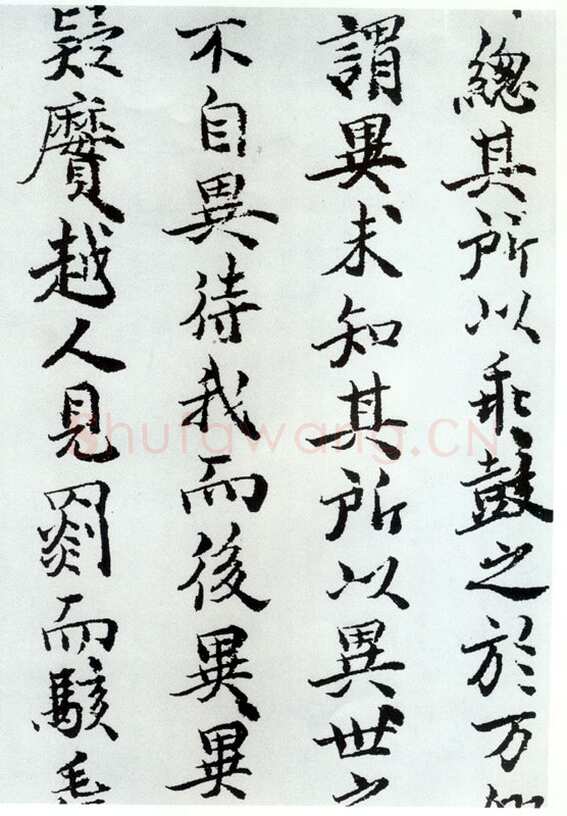 總其所以乖鼓之於万
謂異未知其所以異世之
不自異待我而後異異
疑黂越人見罽而駭毳
Shufawang.CN